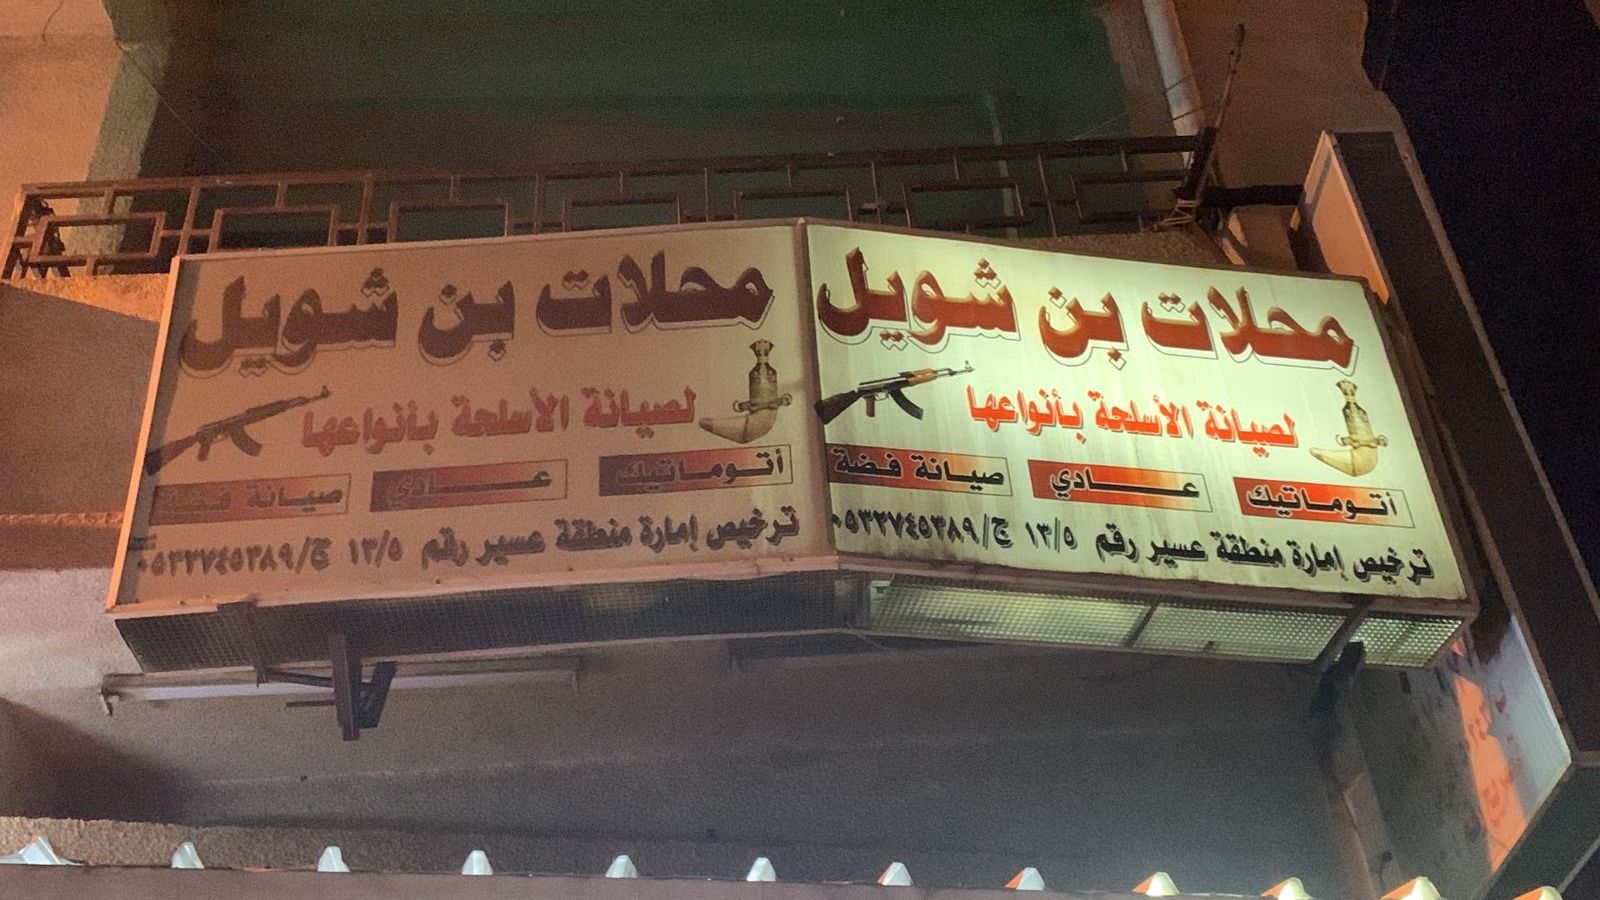 محلات بن شويل
لصيانة الأسلحة بأنواعها
أتوماتيك عادي صيانة فضة
ترخيص إمارة منطقة عسير رقم ١٣/٥ ج/٠٥٣٣٧٤٥٣٨٩
محلات بن شويل
لصيانة الأسلحة بأنواعها
أتوماتيك عادي صيانة فضة
ترخيص إمارة منطقة عسير رقم ١٣/٥ ج/٠٥٣٣٧٤٥٣٨٩